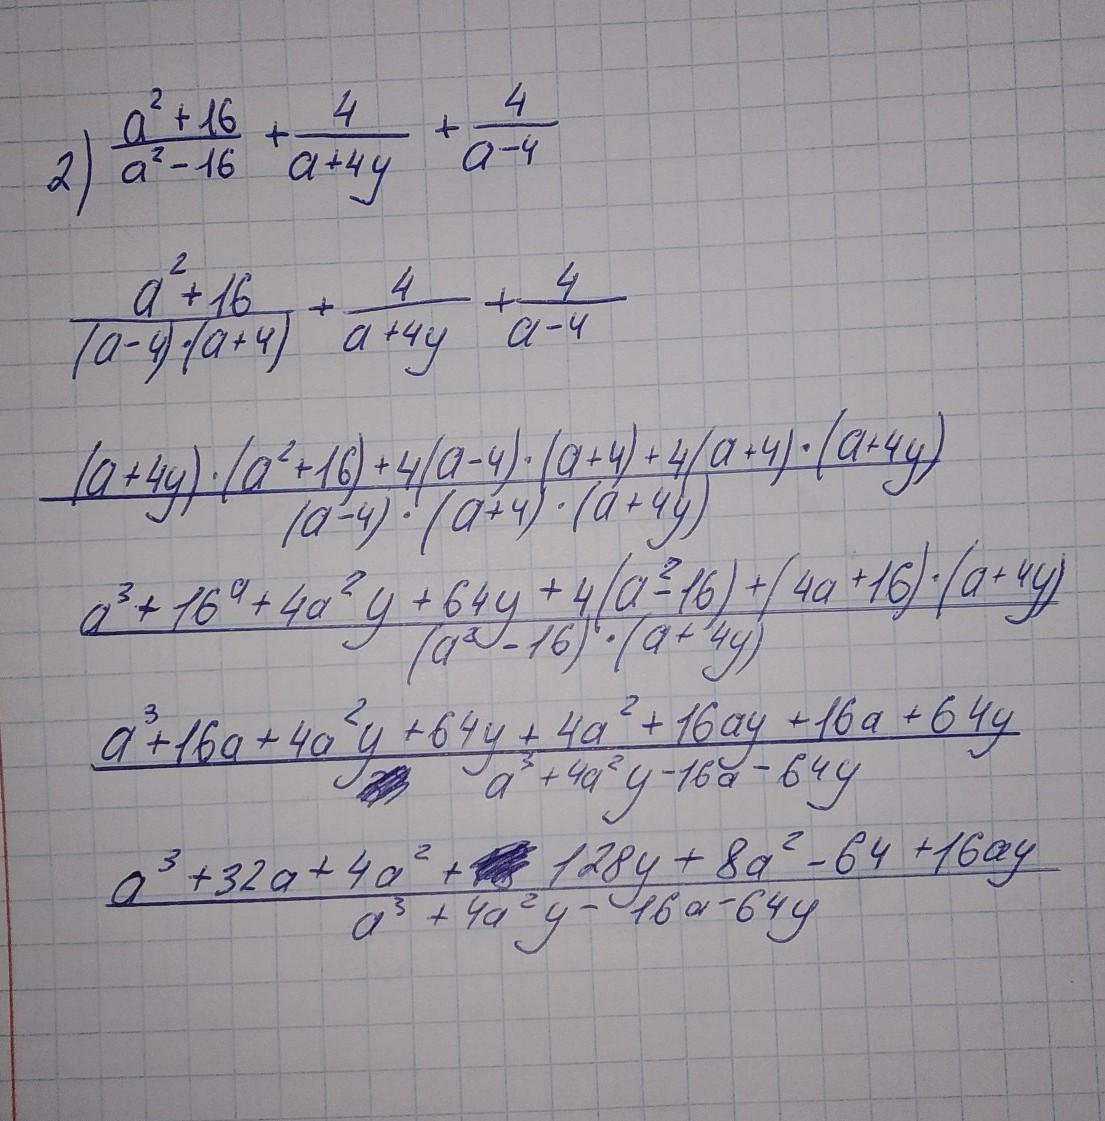 2) (a² + 16)/(a² - 16) + 4/(a+4y) + 4/(a-4)
(a² + 16)/((a-4)·(a+4)) + 4/(a+4y) + 4/(a-4)
((a+4y)·(a²+16)+4(a-4)·(a+4)+4(a+4)·(a+4y))/((a-4)·(a+4)·(a+4y))
(a³ + 16ᵃ + 4a²y + 64y + 4(a²-16)+(4a+16)·(a+4y))/((a²-16)·(a+4y))
(a³+16a+4a²y+64y+4a²+16ay+16a+64y)/(a³+4a²y-16a-64y)
(a³+32a+4a²+128y+8a²-64+16ay)/(a³+4a²y-16a-64y)